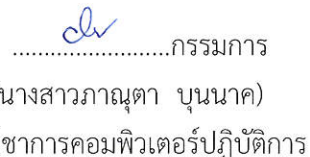 ........................กรรมการ
นางสาวภาณุตา บุนนาค)
ชาการคอมพิวเตอร์ปฏิบัติการ